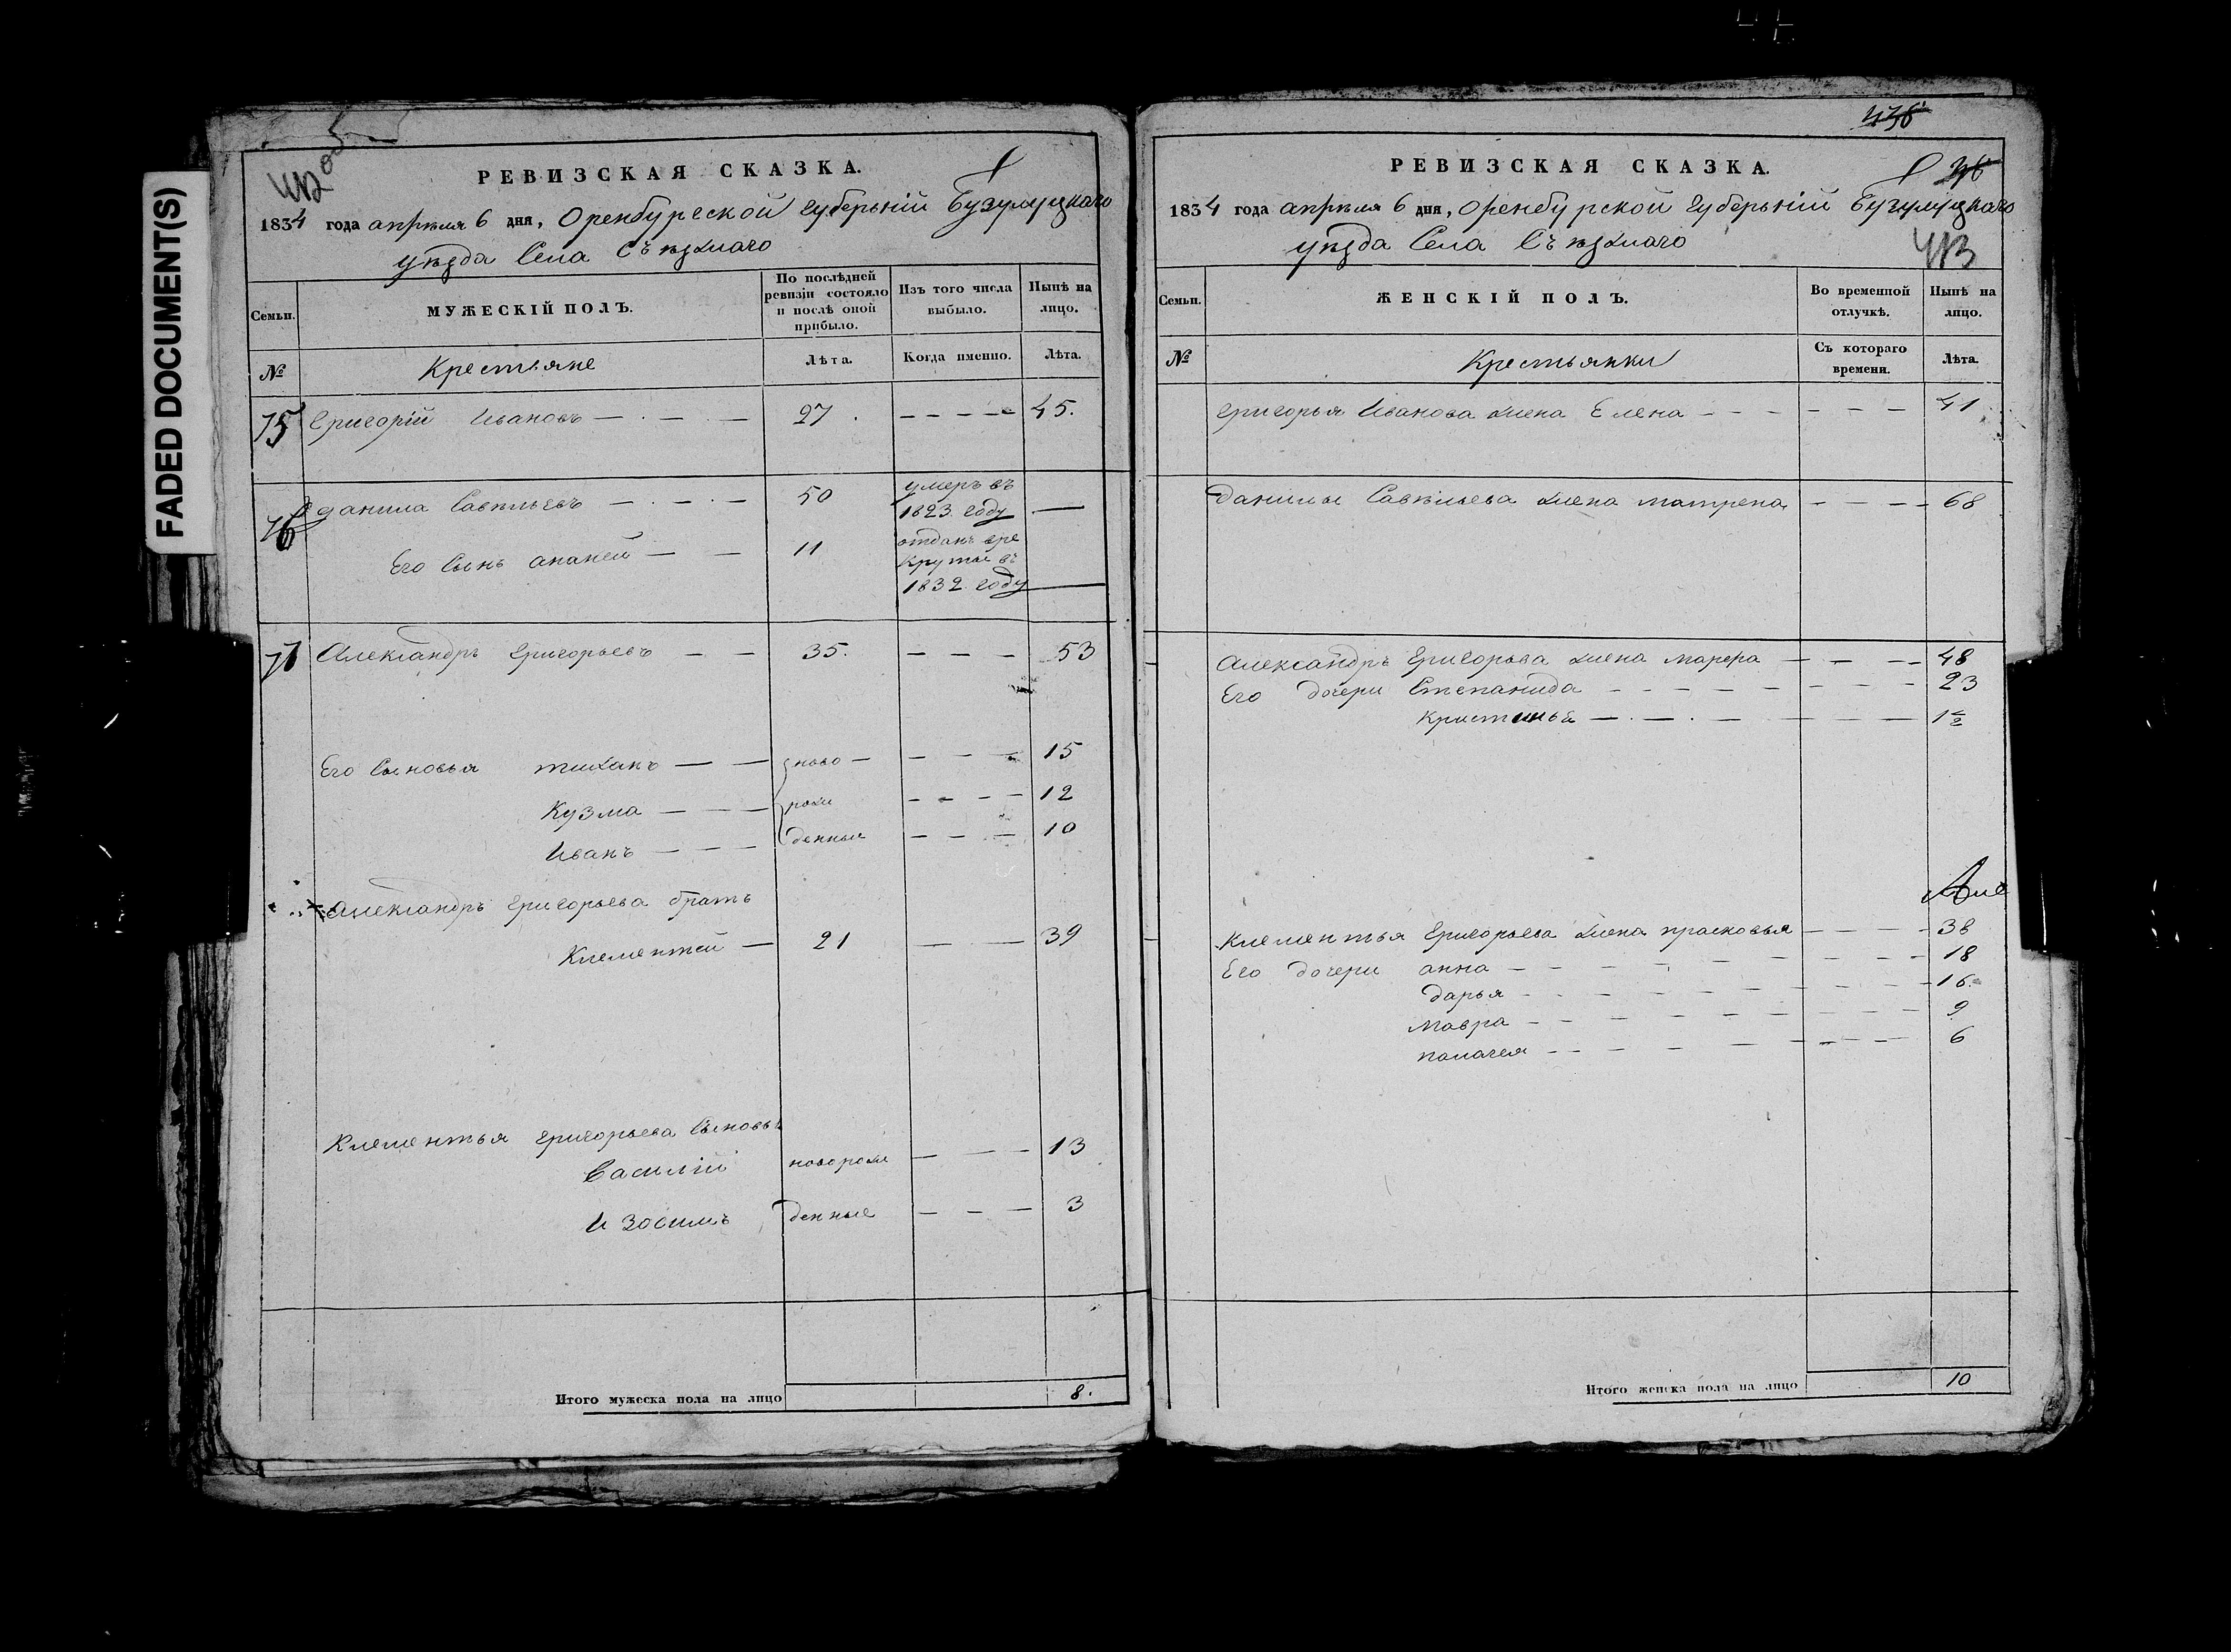 FADED DOCUMENT(S)
412 об
РЕВИЗСКАЯ СКАЗКА.
1834 года апреля 6 дня, Оренбургской губерьнии Бузулуцкаго
уѣзда Села Съѣзжаго
Семьи.
МУЖЕСКІЙ ПОЛЪ.
По послѣдней ревизіи состояло и послѣ оной прибыло.
Изъ того числа выбыло.
Нынѣ на лицо.
№
Крестьяне
Лѣта.
Когда именно.
Лѣта.
75 Григорій Ивановъ 27 45.
76 Данила Савельевъ 50 умеръ въ 1823 году
Его Сынъ Ананей 11 отданъ вре круты въ 1832 году
77 Александръ Григорьевъ 35. 53
Его Сыновья Тиханъ ново 15
Кузма рож 12
Иванъ денные 10
Александръ Григорьева братъ
Клементей 21 39
Клементья Григорьева Сыновья
Василій новорож 13
Изосимъ денные 3
Итого мужеска пола на лицо 8.
438
РЕВИЗСКАЯ СКАЗКА.
1834 года апреля 6 дня, Оренбурской губерьнии Бузулуцкаго
уѣзда Села Съѣзжаго
413
Семьи.
ЖЕНСКІЙ ПОЛЪ.
Во временной отлучкѣ.
Нынѣ на лицо.
№
Крестьянки
Съ котораго времени.
Лѣта.
Григорья Иванова жена Елена 41
Данилы Савельева жена Матрена 68
Александръ Григорьва жена Марфа 48
Его дочери Степанида 23
Кристинья 1½
Клементья Григорьева жена Прасковья 38
Его дочери Анна 18
Дарья 16.
Мавра 9
Палагея 6
Итого женска пола на лицо 10